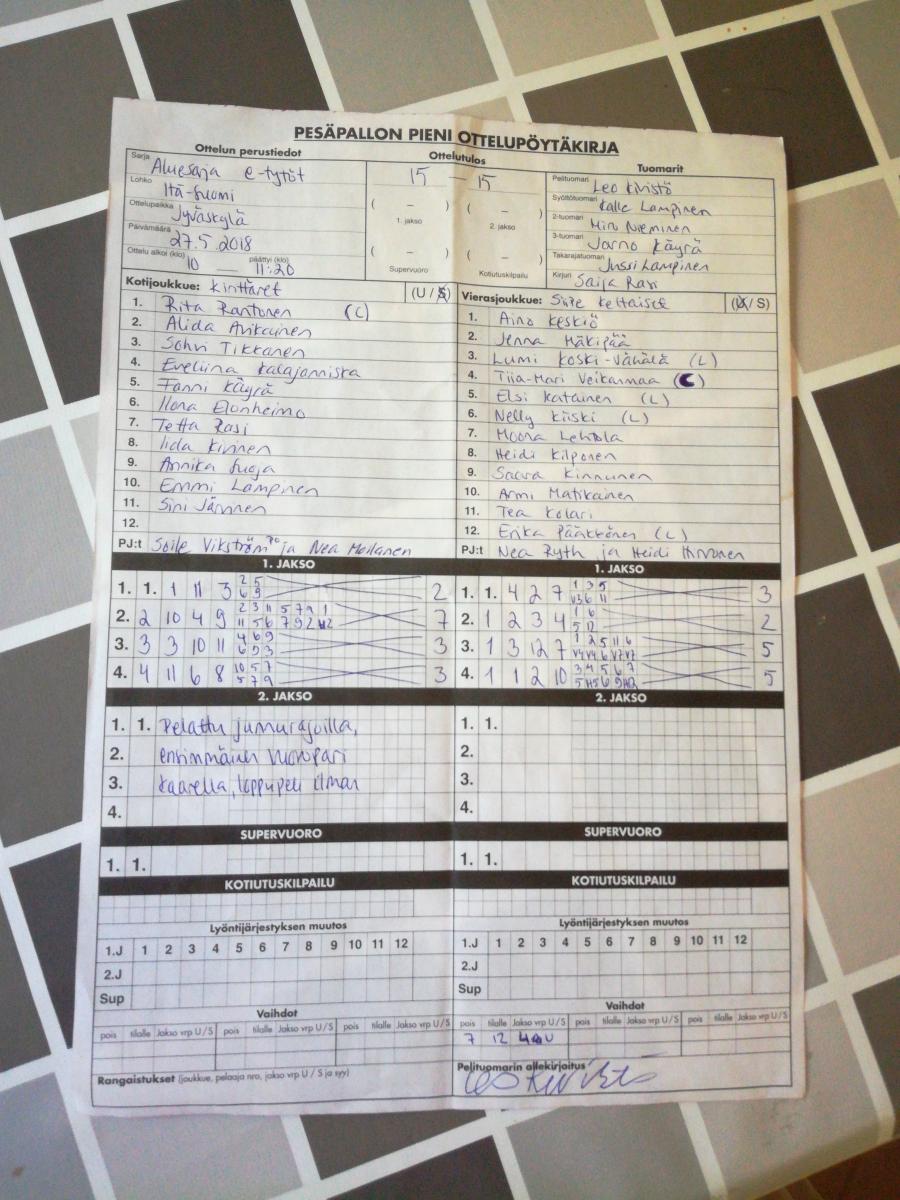 PESÄPALLON PIENI OTTELUPÖYTÄKIRJA
Ottelun perustiedot
Sarja Aluesarja e-tytöt
Lohko Itä-Suomi
Ottelupaikka Jyväskylä
Päivämäärä 27.5.2018
Ottelu alkoi (klo) 10 — päättyi (klo) 11:20
Ottelutulos
15 — 15
( – ) ( – )
1. jakso 2. jakso
( – ) ( – )
Supervuoro Kotiutuskilpailu
Tuomarit
Pelituomari Leo Kivistö
Syöttötuomari Kalle Lampinen
2-tuomari Niina Nieminen
3-tuomari Jarno Käyrä
Takarajatuomari Jussi Lampinen
Kirjuri Saija Rasi
Kotijoukkue: Kirittäret (U / S)
1. Rita Rantonen (C)
2. Alida Avikainen
3. Sohvi Tikkanen
4. Eveliina Kalajanniska
5. Fanni Käyrä
6. Ilona Elonheimo
7. Tetta Rasi
8. Iida Kivinen
9. Annika Suoja
10. Emmi Lampinen
11. Sini Järvinen
12.
PJ:t Soile Vikström ja Nea Moilanen
Vierasjoukkue: Siilin Keltaiset (U / S)
1. Aino Keskiö
2. Jenna Mäkipää
3. Lumi Koski-Vähälä (L)
4. Tiia-Mari Veikanmaa (C)
5. Elsi Katainen (L)
6. Nelly Kiiski (L)
7. Moona Lehtola
8. Heidi Kilponen
9. Saara Kinnunen
10. Armi Matikainen
11. Tea Kolari
12. Erika Pääkkönen (L)
PJ:t Nea Ryth ja Heidi Hirvonen
1. JAKSO
1. 1. 1 11 3 2 5 6 9 2
2. 2 10 4 9 2 3 11 5 7 9 1 7
3. 3 3 10 11 4 6 9 6 9 3 3
4. 4 11 6 8 10 5 7 5 7 9 3
1. JAKSO
1. 1. 4 2 7 1 3 5 3
2. 1 2 3 4 1 6 5 12 2
3. 1 3 12 7 1 2 5 11 6 5
4. 1 1 2 10 3 4 5 6 7 5
2. JAKSO
1. 1. Pelattu jumurajoilla,
2. ensimmäinen vuoropari
3. kaarella, loppupeli ilman
4.
2. JAKSO
1. 1.
2.
3.
4.
SUPERVUORO
1. 1.
SUPERVUORO
1. 1.
KOTIUTUSKILPAILU
KOTIUTUSKILPAILU
Lyöntijärjestyksen muutos
1.J 1 2 3 4 5 6 7 8 9 10 11 12
2.J
Sup
Lyöntijärjestyksen muutos
1.J 1 2 3 4 5 6 7 8 9 10 11 12
2.J
Sup
Vaihdot
pois tilalle Jakso vrp U/S pois tilalle Jakso vrp U/S pois tilalle Jakso vrp U/S
Vaihdot
pois tilalle Jakso vrp U/S pois tilalle Jakso vrp U/S pois tilalle Jakso vrp U/S
7 12 U
Rangaistukset (joukkue, pelaaja nro, jakso vrp U / S ja syy)
Pelituomarin allekirjoitus
Leo Kivistö